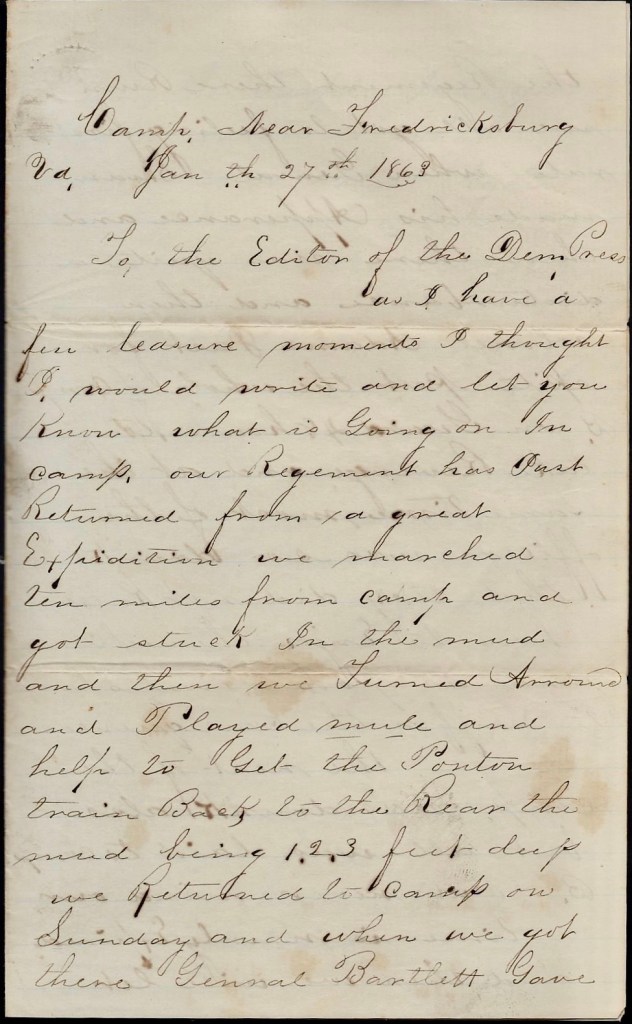 Camp, Near Fredricksburg
Va, Jan th 27th 1863
To the Editor of the Dem Press
as I have a
few leasure moments I thought
I would write and let you
Know what is Going on In
camp, our Regement has Just
Returned from a great
Expidition we marched
ten miles from camp and
got stuck In the mud
and then we Turned Arround
and Played mule and
help to Get the Ponton
train Back to the Rear the
mud being 1, 2, 3 feet deep
we Returned to camp on
Sunday and when we got
there Genral Bartlett Gave